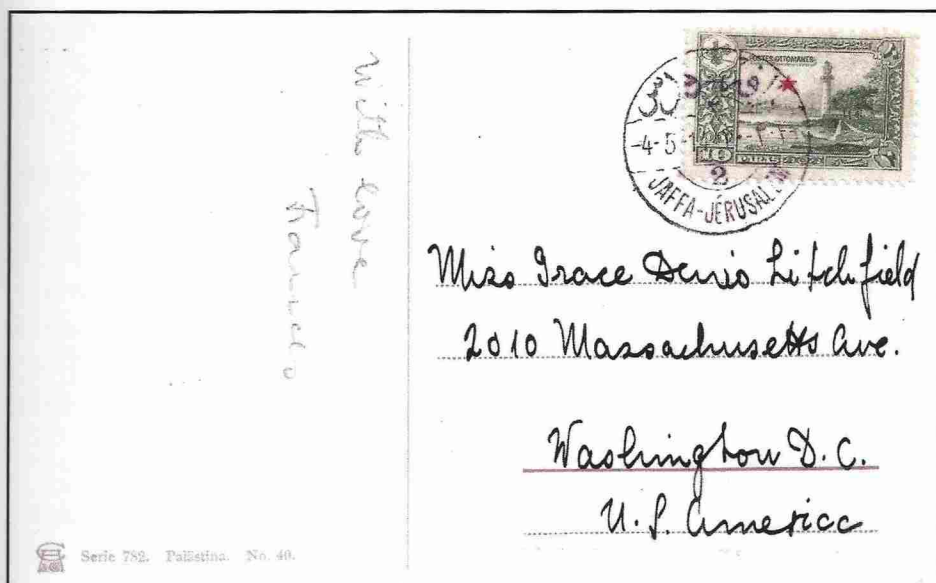 With love
Frances
POSTES OTTOMANES
10 PARAS
-4-5-1
2
JAFFA-JÉRUSALEM
Miss Grace Denio Litchfield
2010 Massachusetts Ave.
Washington D.C.
U.S. America
Serie 782. Palästina. No. 40.